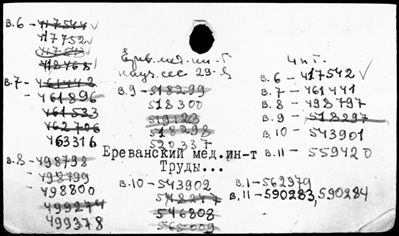 в.6 - 417544
417752 ✓
417543
412468
в.7 - 461442
- 461896
461533
462706
463316
в.8 - 498798
498799
498800
499274
499378
Ерев. мед. ин-т
науч. сес 29-я
в.9 - 518299
518300
519123
518298
520337
Ереванский мед.ин-т
Труды...
в.10 - 543902
548247
546808
568009
в.6 - 417542 ✓
в.7 - 461441
в.8 - 498797
в.9 - 518297
в.10 - 543901
в.11 - 559420
в.1 - 562979
в.11 - 590283, 590284